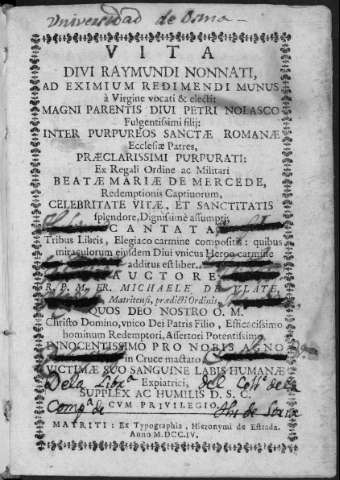 Universidad de Osma
VITA
DIVI RAYMUNDI NONNATI,
AD EXIMIUM REDIMENDI MUNUS
à Virgine vocati & electi:
MAGNI PARENTIS DIUI PETRI NOLASCO
Fulgentissimi filij:
INTER PURPUREOS SANCTÆ ROMANÆ
Ecclesiæ Patres,
PRÆCLARISSIMI PURPURATI:
Ex Regali Ordine ac Militari
BEATÆ MARIÆ DE MERCEDE,
Redemptionis Captivorum,
CELEBRITATE VITÆ, ET SANCTITATIS
splendore, Dignissimè assumpti;
CANTATA
Tribus Libris, Elegiaco carmine compositis: quibus
miraculorum eiusdem Diui vnicus Heroo carmine
additus est liber.
AUCTORE
R. P. M. FR. MICHAELE DE VLATE,
Matritensi, prædicti Ordinis,
QUOS DEO NOSTRO O. M.
Christo Domino, vnico Dei Patris Filio, Efficacissimo
hominum Redemptori, Assertori Potentissimo
INNOCENTISSIMO PRO NOBIS AGNO
in Cruce mactato
VICTIMÆ SUO SANGUINE LABIS HUMANÆ
De la Libra Expiatrici, del Collo de la
SUPPLEX AC HUMILIS D. S. C.
Compa de CVM PRIVILEGIO
MATRITI: Ex Typographia, Hieronymi de Estrada.
Anno M.DCC.IV.